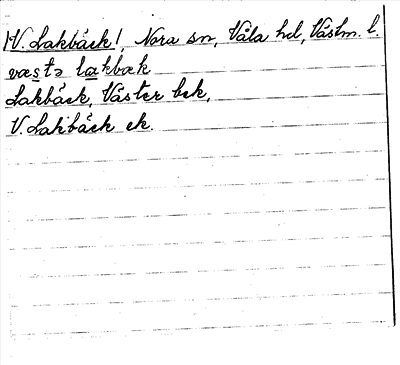 V. Lakbäck!, Nora sn, Våla hd, Västm. l.
væstə lakbæk
Lakbäck, Väster bek,
V. Lakbäck ek.